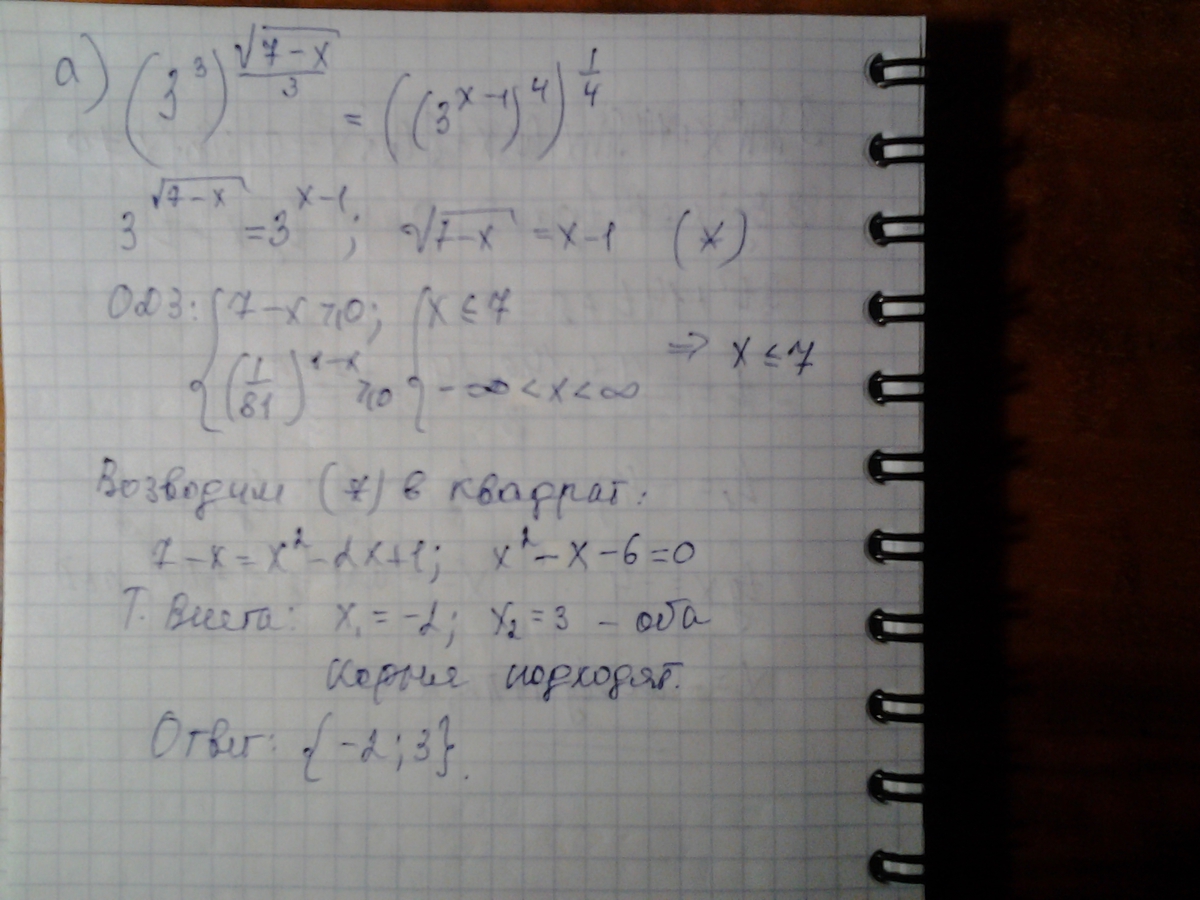 а) (3³)^(√(7-x)/3) = ((3^(x-1))⁴)^(1/4)
3^√(7-x) = 3^(x-1); √(7-x) = x-1 (*)
ОДЗ: { 7-x ≥ 0; { x ≤ 7
{ (1/81)^(1-x) ≥ 0 { -∞ < x < ∞ ⇒ x ≤ 7
Возводим (7) в квадрат:
7-x = x²-2x+1; x²-x-6=0
Т. Виета: x₁ = -2; x₂ = 3 - оба
корня подходят.
Ответ: {-2; 3}.